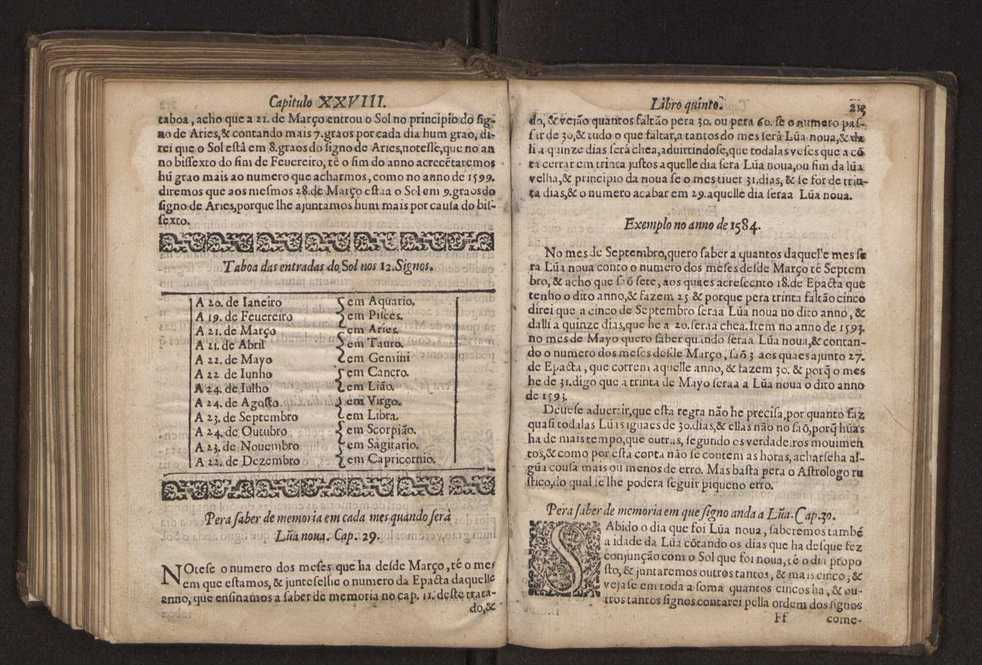 Capitulo XXVIII.
taboa, acho que a 21. de Março entrou o Sol no principio do sig-
no de Aries,& contando mais 7.graos por cada dia hum grao, di-
rei que o Sol està em 8.graos do signo de Aries,notesse,que no an
no bissexto do fim de Feuereiro, tè o fim do anno acrecẽtaremos
hũ grao mais ao numero que acharmos, como no anno de 1599.
diremos que aos mesmos 28.de Março estaa o Sol em 9.graos do
signo de Aries,porque lhe ajuntamos hum mais por causa do bis-
sexto.
Taboa das entradas do Sol nos 12.Signos.
A 20. de Ianeiro em Aquario.
A 19. de Feuereiro em Pisces.
A 21. de Março em Aries.
A 21. de Abril em Tauro.
A 22. de Mayo em Gemini
A 22 de Iunho em Cancro.
A 24. de Iulho em Lião.
A 24. de Agosto em Virgo.
A 23. de Septembro em Libra.
A 24. de Outubro em Scorpião.
A 23. de Nouembro em Sagitario.
A 22. de Dezembro em Capricornio.
Pera saber de memoria em cada mes quando serà
Lũa noua. Cap. 29.
NOtese o numero dos meses que ha desde Março, tè o mes
em que estamos, & junteselhe o numero da Epacta daquelle
anno, que ensinamos a saber de memoria no cap. 11. deste trata-
do,&
Libro quinto. 213
do, & vejão quantos faltão pera 30. ou pera 60. se o numero pas-
sar de 30,& tudo o que faltar,a tantos do mes serà Lũa noua,& da
li a quinze dias serà chea,aduirtindose,que todalas vezes que a cõ
ta cerrar em trinta justos aquelle dia sera Lũa noua,ou fim da lũa
velha,& principio da noua se o mes tiuer 31.dias, & se for de trin-
ta dias,& o numero acabar em 29.aquelle dia seraa Lũa noua.
Exemplo no anno de 1584.
No mes de Septembro,quero saber a quantos daquelle mes se
ra Lũa noua conto o numero dos meses desde Março tè Septem
bro, & acho que sõ sete, aos quaes acrescento 18.de Epacta que
tenho o dito anno,& fazem 25 & porque pera trinta faltão cinco
direi que a cinco de Septembro seraa Lũa noua no dito anno, &
dalli a quinze dias,que he a 20.seraa chea.Item no anno de 1593.
no mes de Mayo quero saber quando seraa Lũa noua,& contan-
do o numero dos meses desde Março, saõ 3 aos quaes ajunto 27.
de Epacta, que correm aquelle anno, & fazem 30. & porq̃ o mes
he de 31.digo que a trinta de Mayo seraa a Lũa noua o dito anno
de 1593.
Deuese aduertir,que esta regra não he precisa,por quanto faz
quasi todalas Lũis iguaes de 30.dias,& ellas não no saõ,porq̃ hũas
ha de mais tempo,que outras, segundo os verdadeiros mouimen
tos,& como por esta conta não se contem as horas,acharseha al-
gũa cousa mais ou menos de erro. Mas basta pera o Astrologo ru
stico,do qual se lhe podera seguir piqueno erro.
Pera saber de memoria em que signo anda a Lũa. Cap.30.
SAbido o dia que foi Lũa noua, saberemos tambẽ
a idade da Lũa cõtando os dias que ha desque fez
conjunção com o Sol que foi noua, tè o dia propo
sto, & juntaremos outros tantos, & mais cinco, &
vejase em toda a soma quantos cincos ha, & ou-
tros tantos signos contarei pella ordem dos signos
Ff come-